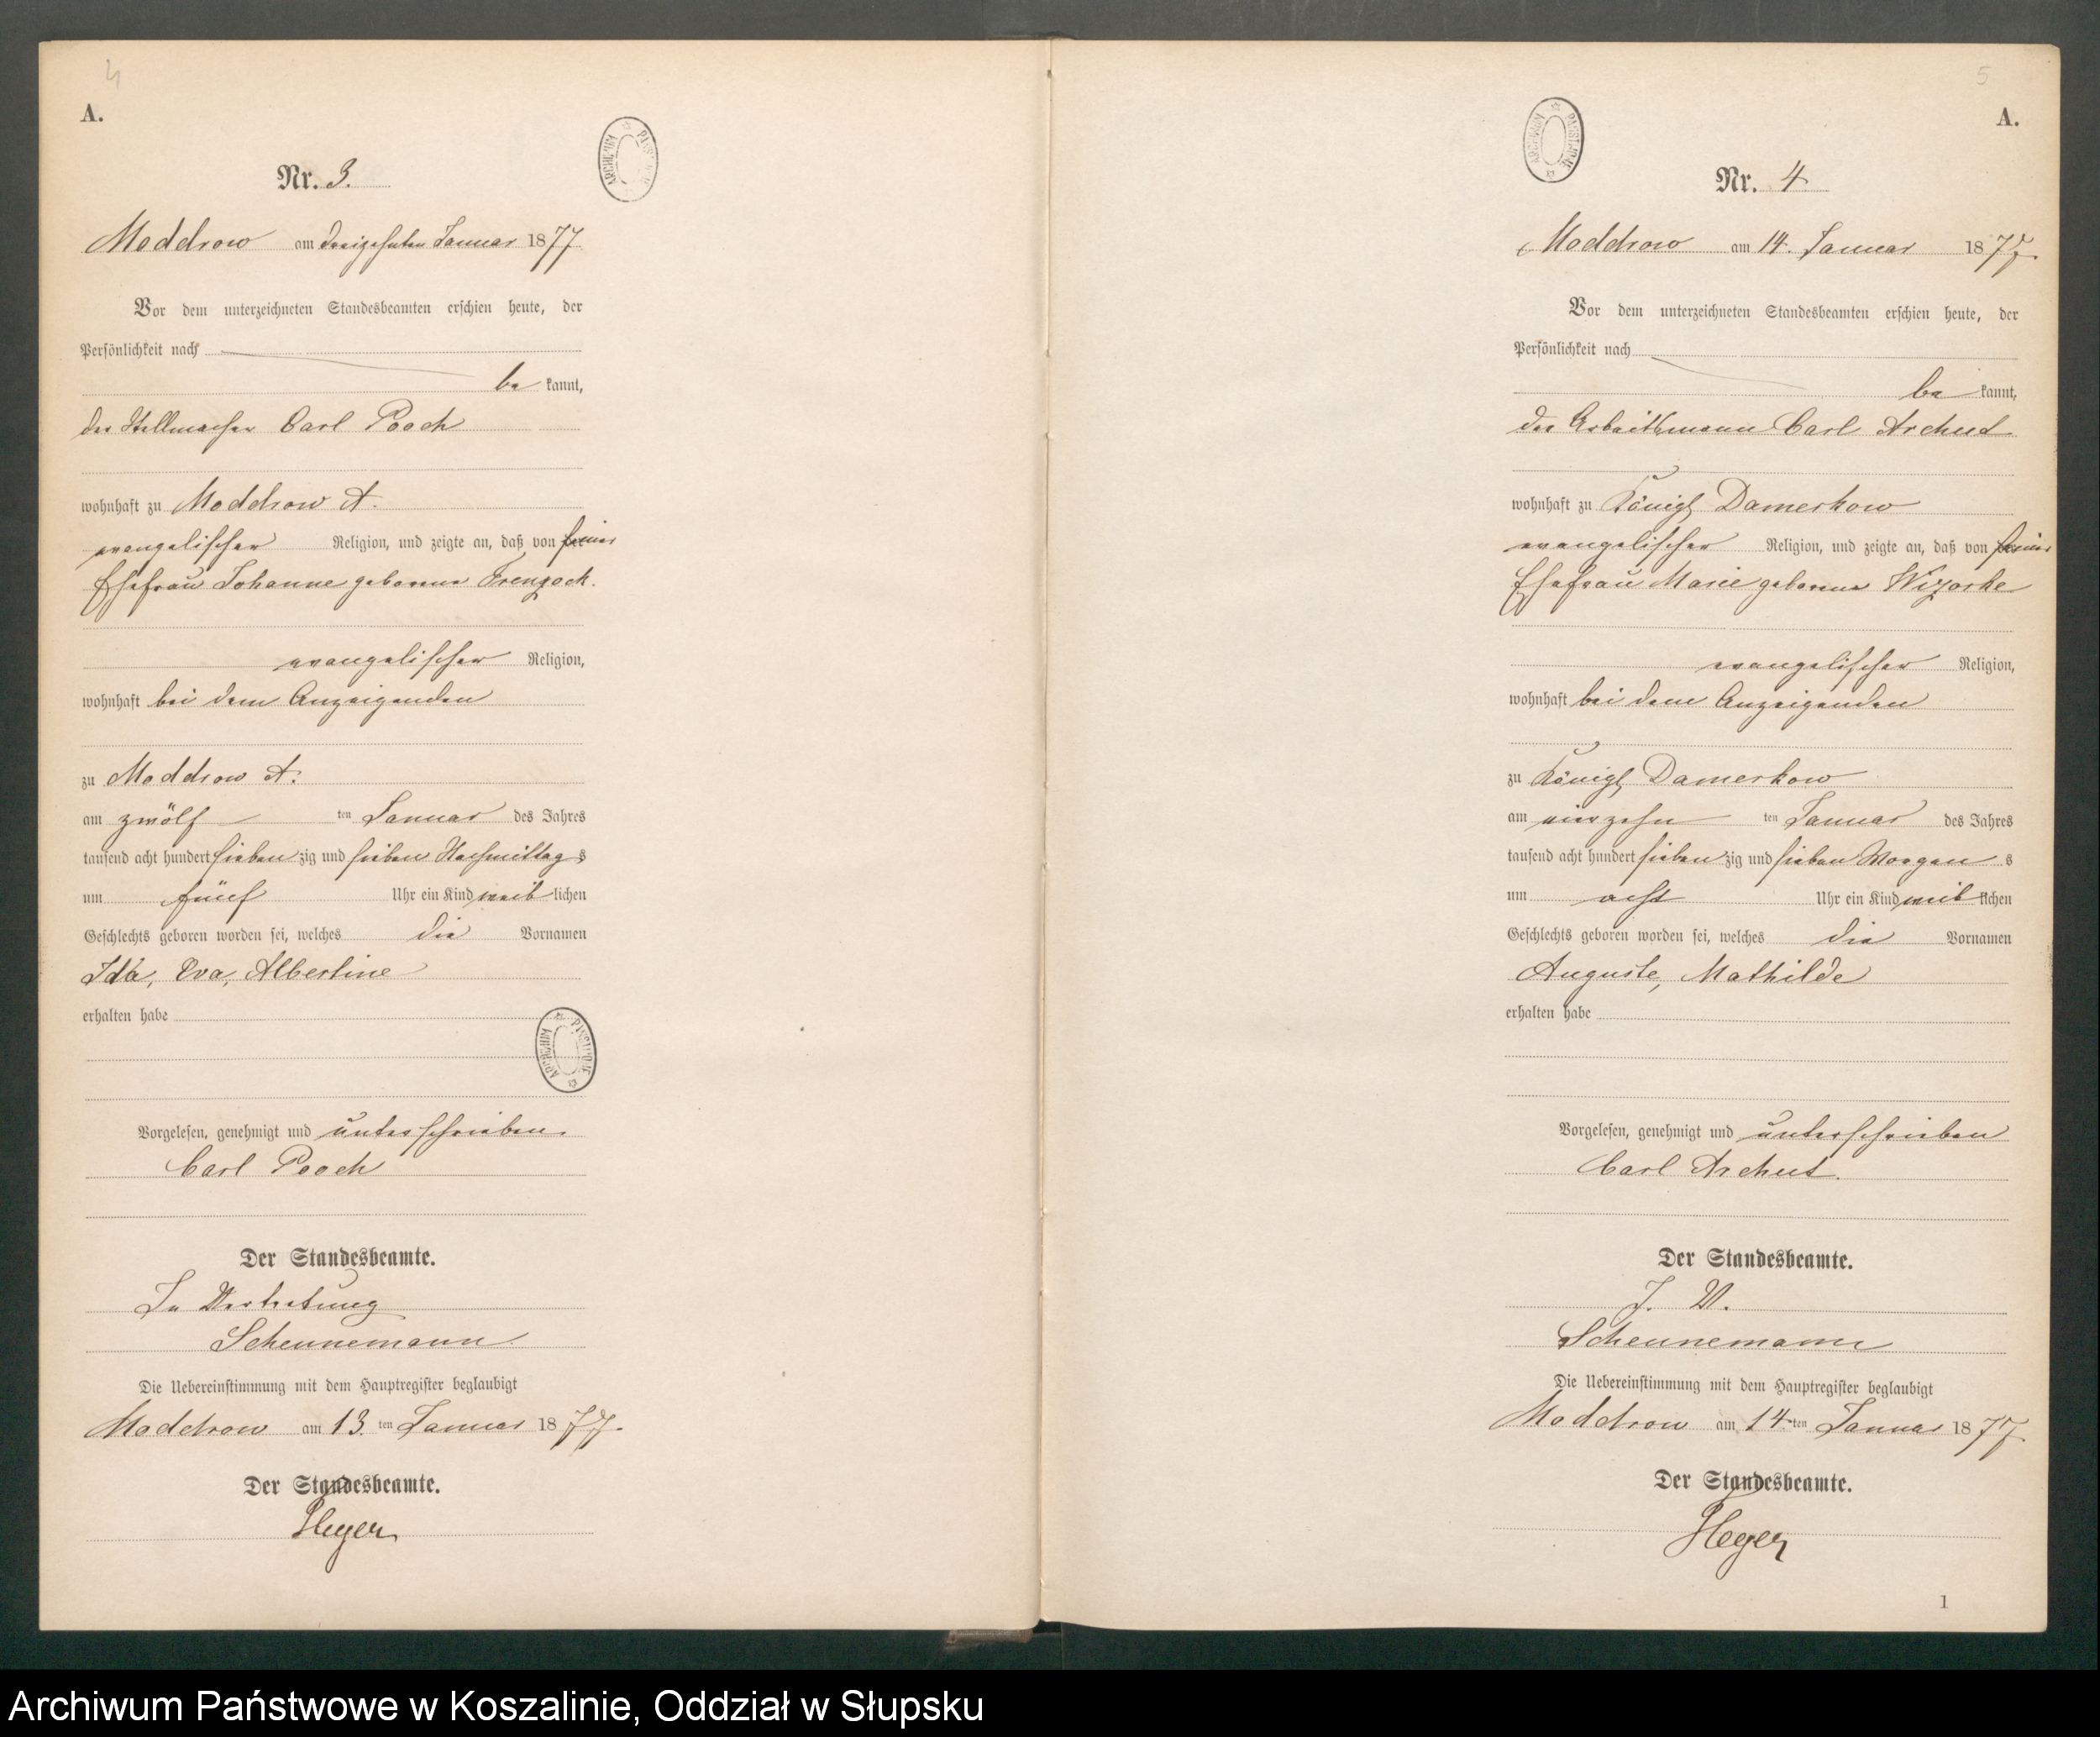 4
A.
ARCHIWUM PAŃSTWOWE
Nr. 3.
Moddrow am dreizehnten Januar 1877
Vor dem unterzeichneten Standesbeamten erschien heute, der
Persönlichkeit nach
be kannt,
der Stellmacher Carl Pooch
wohnhaft zu Moddrow A.
evangelischer Religion, und zeigte an, daß von seiner
Ehefrau Johanne geborene Frenzock.
evangelischer Religion,
wohnhaft bei dem Anzeigenden
zu Moddrow A.
am zwölf ten Januar des Jahres
tausend acht hundert sieben zig und sieben Nachmittag s
um fünf Uhr ein Kind weib lichen
Geschlechts geboren worden sei, welches die Vornamen
Ida, Eva, Albertine
erhalten habe
ARCHIWUM PAŃSTWOWE
Vorgelesen, genehmigt und unterschrieben.
Carl Pooch
Der Standesbeamte.
In Vertretung
Scheunemann
Die Uebereinstimmung mit dem Hauptregister beglaubigt
Moddrow am 13. ten Januar 1877.
Der Standesbeamte.
Heyer
5
A.
ARCHIWUM PAŃSTWOWE
Nr. 4
Moddrow am 14. Januar 1877.
Vor dem unterzeichneten Standesbeamten erschien heute, der
Persönlichkeit nach
be kannt,
der Arbeitsmann Carl Archut
wohnhaft zu Königl Damerkow
evangelischer Religion, und zeigte an, daß von seiner
Ehefrau Marie geborene Wizorke
evangelischer Religion,
wohnhaft bei dem Anzeigenden
zu Königl Damerkow
am vierzehn ten Januar des Jahres
tausend acht hundert sieben zig und sieben Morgen s
um acht Uhr ein Kind weib lichen
Geschlechts geboren worden sei, welches die Vornamen
Auguste, Mathilde
erhalten habe
Vorgelesen, genehmigt und unterschrieben
Carl Archut.
Der Standesbeamte.
J. V.
Scheunemann
Die Uebereinstimmung mit dem Hauptregister beglaubigt
Moddrow am 14 ten Januar 1877.
Der Standesbeamte.
Heyer
1
Archiwum Państwowe w Koszalinie, Oddział w Słupsku